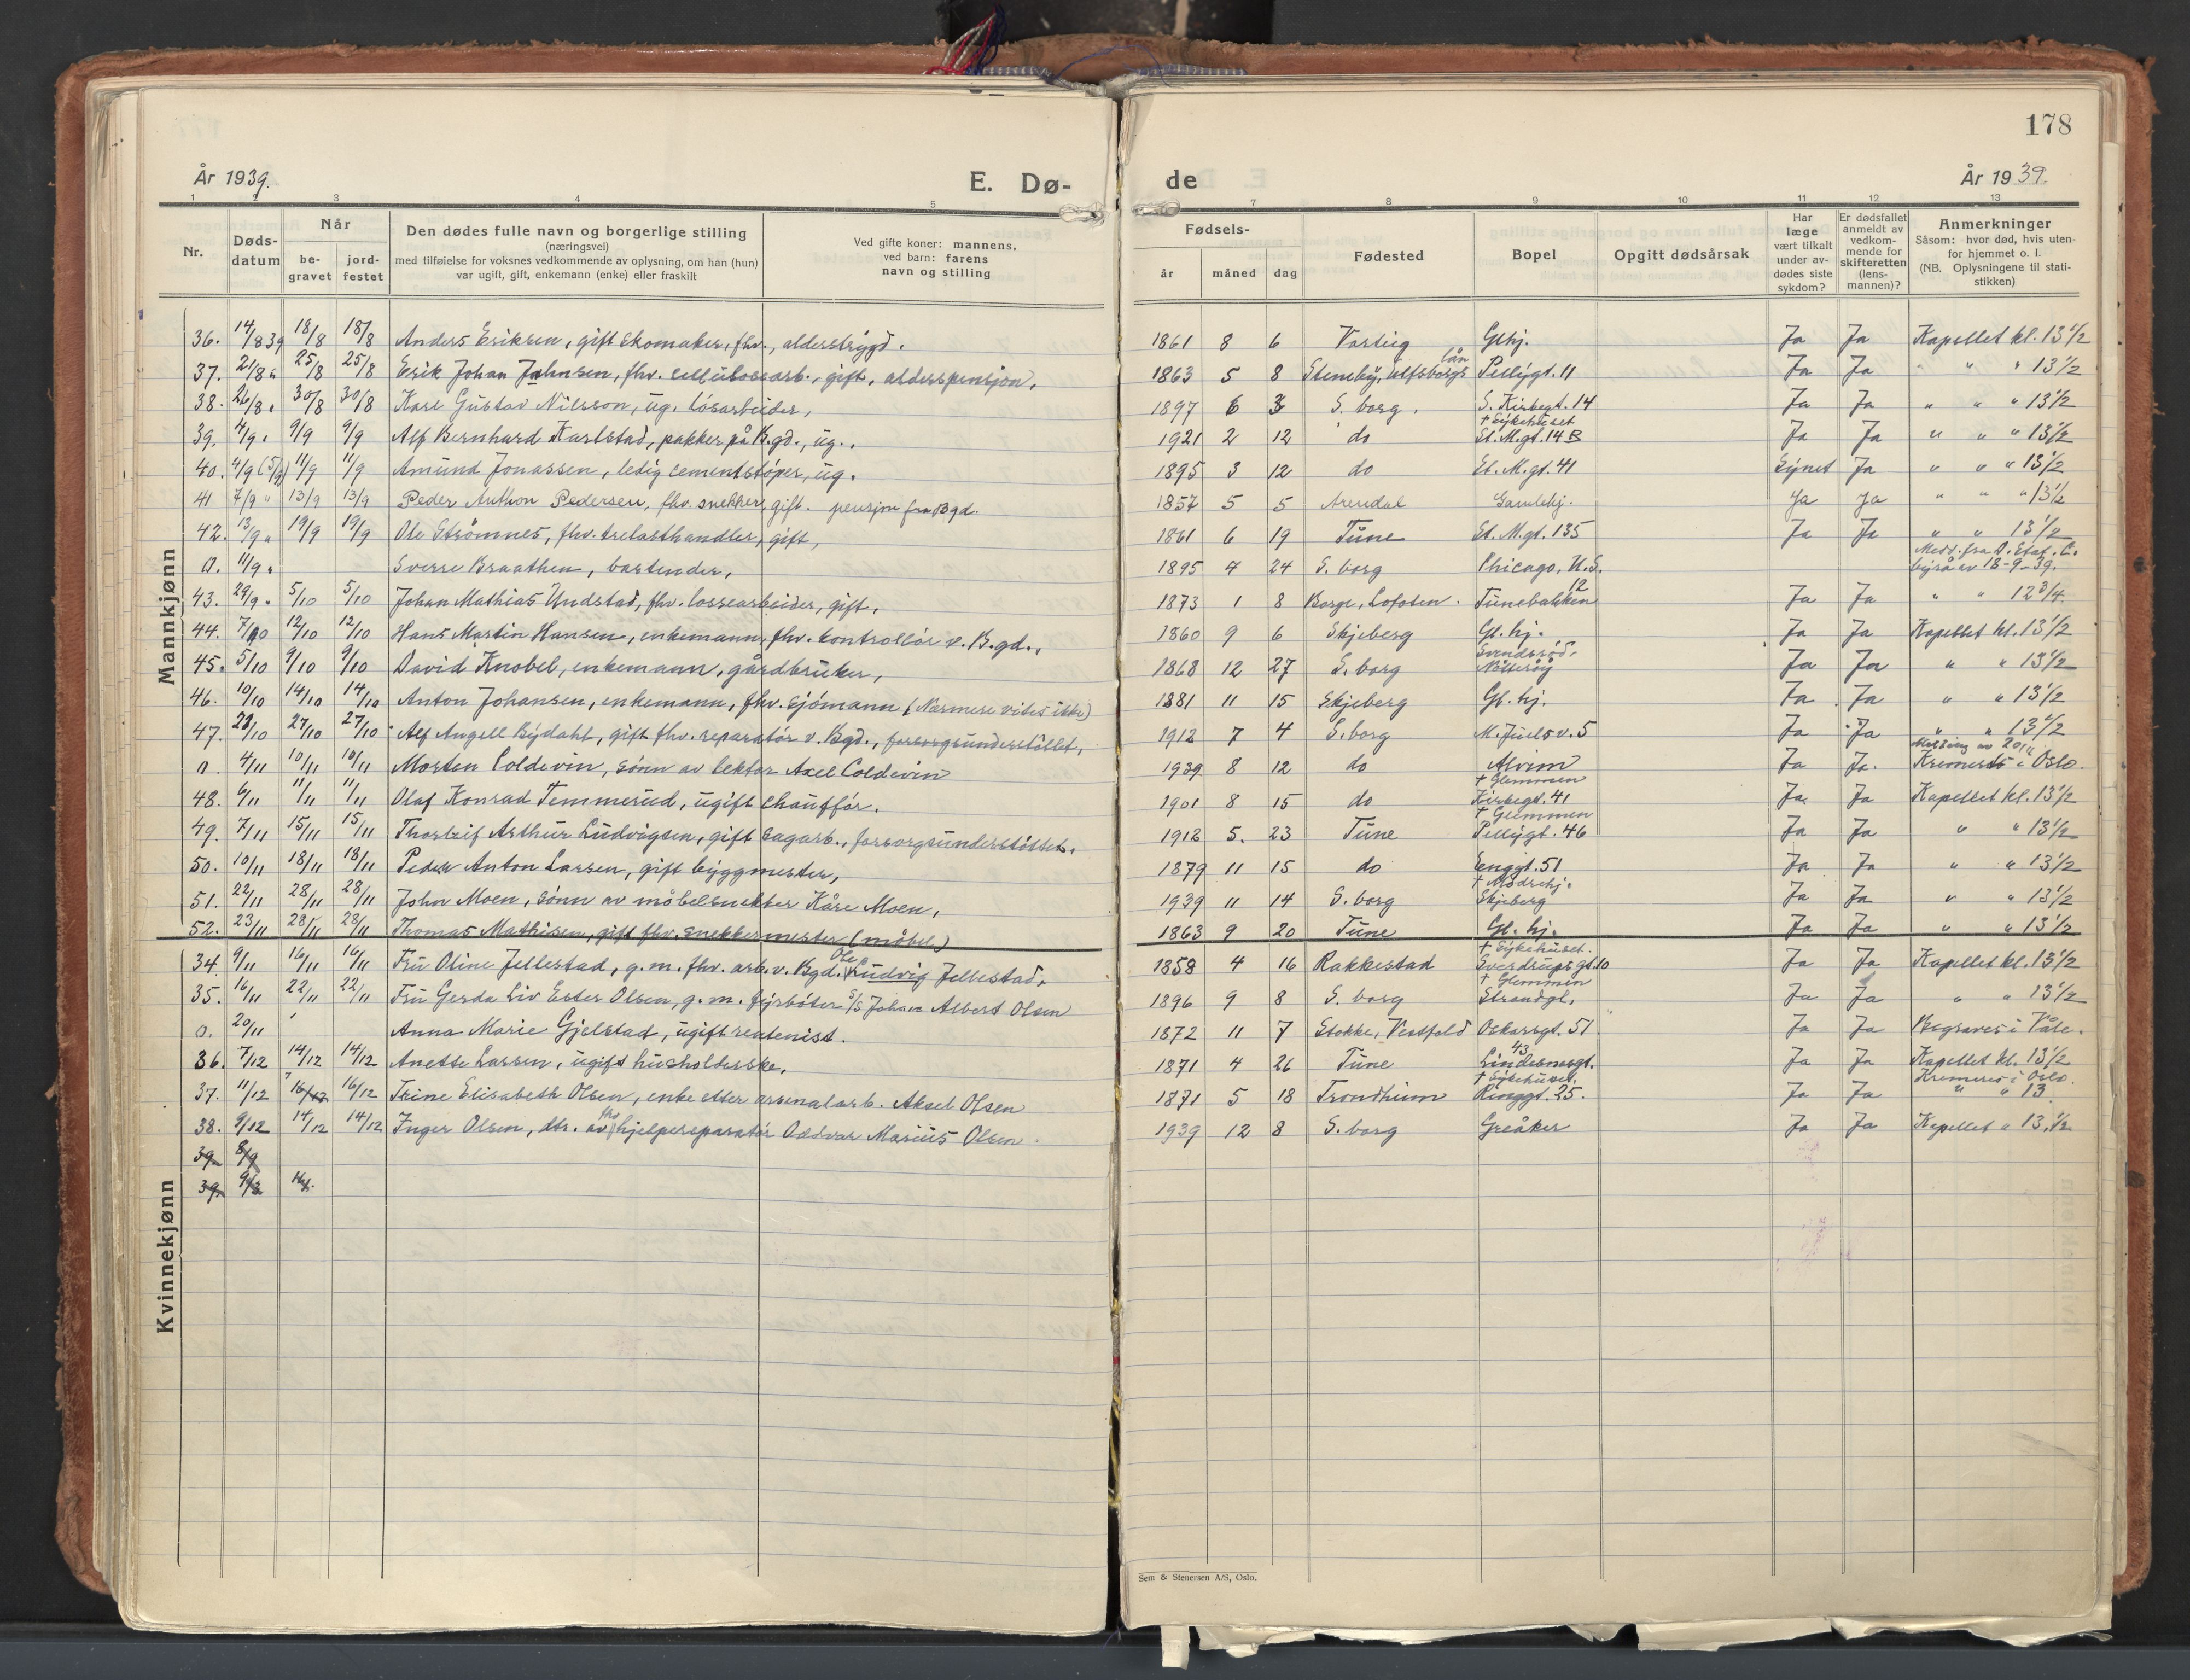 178
År 1939.
E. Dø-
de
År 1939.
1 2 3 4 5
7 8 9 10 11 12 13
Nr.
Døds-
datum
Når
be-
gravet
jord-
festet
Den dødes fulle navn og borgerlige stilling
(næringsvei)
med tilføielse for voksnes vedkommende av oplysning, om han (hun)
var ugift, gift, enkemann (enke) eller fraskilt
Ved gifte koner: mannens,
ved barn: farens
navn og stilling
Fødsels-
år
måned
dag
Fødested
Bopel
Opgitt dødsårsak
Har
læge
vært tilkalt
under av-
dødes siste
sykdom?
Er dødsfallet
anmeldt av
vedkom-
mende for
skifteretten
(lens-
mannen)?
Anmerkninger
Såsom: hvor død, hvis uten-
for hjemmet o. l.
(NB. Oplysningene til stati-
stikken)
Mannkjønn
36. 14/8 39 18/8 18/8 Anders Eriksen, gift skomaker, fhv., alderstrygd. 1861 8 6 Varteig Glhj. Ja Ja Kapellet kl. 13 1/2
37. 21/8 " 25/8 25/8 Erik Johan Jahnsen, fhv. cellulosearb., gift, alderspensjon, 1863 5 8 Steneby, Elfsborgs län Pellygt. 11 Ja Ja " " " 13 1/2
38. 26/8 " 30/8 30/8 Karl Gustav Nilsson, ug. løsarbeider, 1897 6 3 S. borg. S. Kirkegt. 14 Ja Ja " " " 13 1/2
39. 4/9 " 9/9 9/9 Alf Bernhard Karlstad, pakker på B.gd., ug., 1921 2 12 do † Sykehuset St. M.gt. 14 B Ja Ja " " " 13 1/2
40. 4/9 (5/9) 11/9 11/9 Amund Jonassen, ledig cementstøper, ug. 1895 3 12 do St. M.gt. 41 Synet Ja " " " 13 1/2
41 7/9 " 13/9 13/9 Peder Anthon Pedersen, fhv. snekker, gift. pensjon fra Bgd. 1857 5 5 Arendal Gamlehj. Ja Ja " " " 13 1/2
42. 13/9 " 19/9 19/9 Ole Strømnes, fhv. trelasthandler, gift, 1861 6 19 Tune St. M.gt. 135 Ja Ja " " 13 1/2
0. 11/9 " Sverre Braathen, bartender, 1895 4 24 S. borg Chicago, U.S. Medd. fra D. Stat. C. byrå av 18-9-39.
43. 29/9 " 5/10 5/10 Johan Mathias Undstad, fhv. lossearbeider, gift, 1873 1 8 Borge, Lofoten. Tunebakken 12 Ja Ja " " 12 3/4.
44. 7/10 12/10 12/10 Hans Martin Hansen, enkemann, fhv. kontrollør v. B.gd., 1860 9 6 Skjeberg Gl. hj. Ja Ja Kapellet kl. 13 1/2
45. 5/10 9/10 9/10 David Knobel, enkemann, gårdbruker, 1868 12 27 S. borg Svendsrød, Nøtterøy Ja Ja " " 13 1/2
46. 10/10 14/10 14/10 Anton Johansen, enkemann, fhv. sjømann (Nærmere vites ikke) 1881 11 15 Skjeberg Gl. hj. Ja Ja " " 13 1/2
47. 21/10 27/10 27/10 Alf Angell Bydahl, gift fhv. reparatør v. Bgd., forsorgsunderstøttet, 1912 7 4 S. borg M. Juels v. 5 Ja Ja " " 13 1/2
0. 4/11 10/11 10/11 Morten Coldevin, sønn av lektor Axel Coldevin 1939 8 12 do Alvim Ja Ja. Melding av 20/11 Kremert i Oslo.
48. 6/11 11/11 11/11 Olaf Konrad Temmerud, ugift chauffør. 1901 8 15 do † Glemmen Kirkegt. 41 Ja Ja Kapellet kl. 13 1/2
49. 7/11 15/11 15/11 Thorleif Arthur Ludvigsen, gift sagarb., forsorgsunderstøttet. 1912 5. 23 Tune † Glemmen Pellygt. 46 Ja Ja " " 13 1/2
50. 10/11 18/11 18/11 Peder Anton Larsen, gift byggmester, 1879 11 15 do Enggt. 51 Ja Ja " " 13 1/2
51. 22/11 28/11 28/11 John Moen, sønn av møbelsnekker Kåre Moen, 1939 11 14 S. borg † Mødrehj. Skjeberg Ja Ja " " 13 1/2
52. 23/11 28/11 28/11 Thomas Mathisen, gift fhv. snekkermester (møbel) 1863 9 20 Tune Gl. hj. Ja Ja " " 13 1/2
Kvinnekjønn
34. 9/11 16/11 16/11 Fru Oline Jellestad, g. m. fhv. arb. v. Bgd. Ole Ludvig Jellestad. 1858 4 16 Rakkestad † Sykehuset. Sverdrups gt. 10 Ja Ja Kapellet kl. 13 1/2
35. 16/11 22/11 22/11 Fru Gerda Liv Ester Olsen, g. m. fyrbøter S/S Johan Albert Olsen 1896 9 8 S. borg † Glemmen Strandgt. Ja Ja " " 13 1/2
0. 20/11 Anna Marie Gjelstad, ugift rentenist. 1872 11 7 Stokke, Vestfold Oskarsgt. 51 Ja Ja Begraves i Våle.
36. 7/12 14/12 14/12 Anette Larsen, ugift husholderske, 1871 4 26 Tune Lindemsgt. 43 Ja Ja Kapellet kl. 13 1/2
37. 11/12 16/12 16/12 Trine Elisabeth Olsen, enke etter arsenalarb. Aksel Olsen 1871 5 18 Trondheim † Sykehuset. Ringgt. 25. Ja Ja Kremeres i Oslo. " " 13
38. 9/12 14/12 14/12 Inger Olsen, dtr. av fhv hjelpereparatør Oddvar Marius Olsen. 1939 12 8 S. borg Greåker Ja Ja Kapellet " 13. 1/2
39. 8/9
39. 9/12 14/
Sem & Stenersen A/S, Oslo.